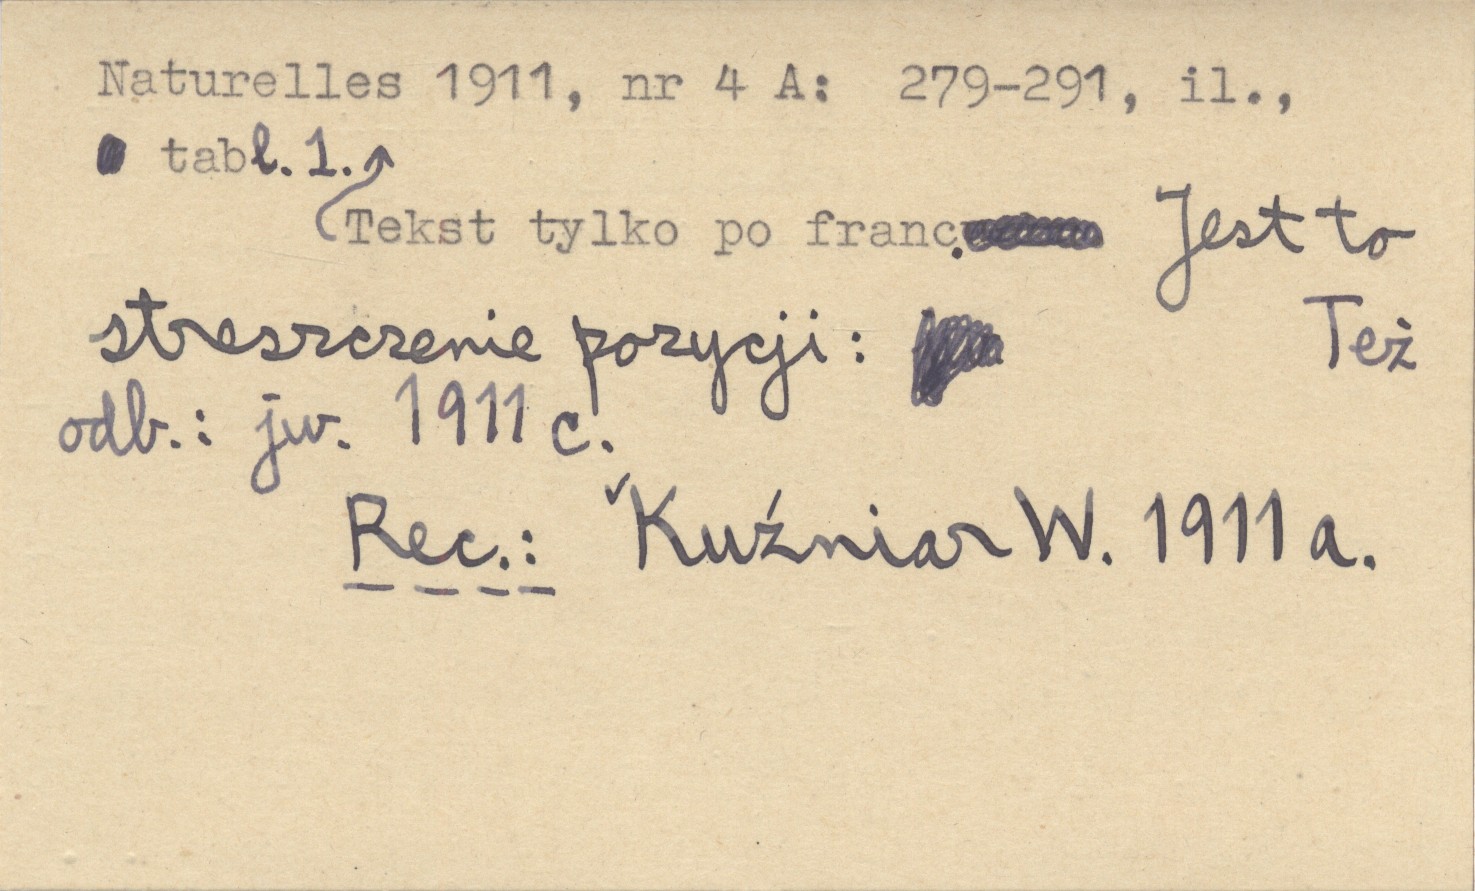 Naturelles 1911, nr 4 A: 279-291, il.,
tabl. 1.
Tekst tylko po franc. Jest to
streszczenie pozycji: Też
odb.: jw. 1911 c.
Rec.: Kuźniar W. 1911 a.